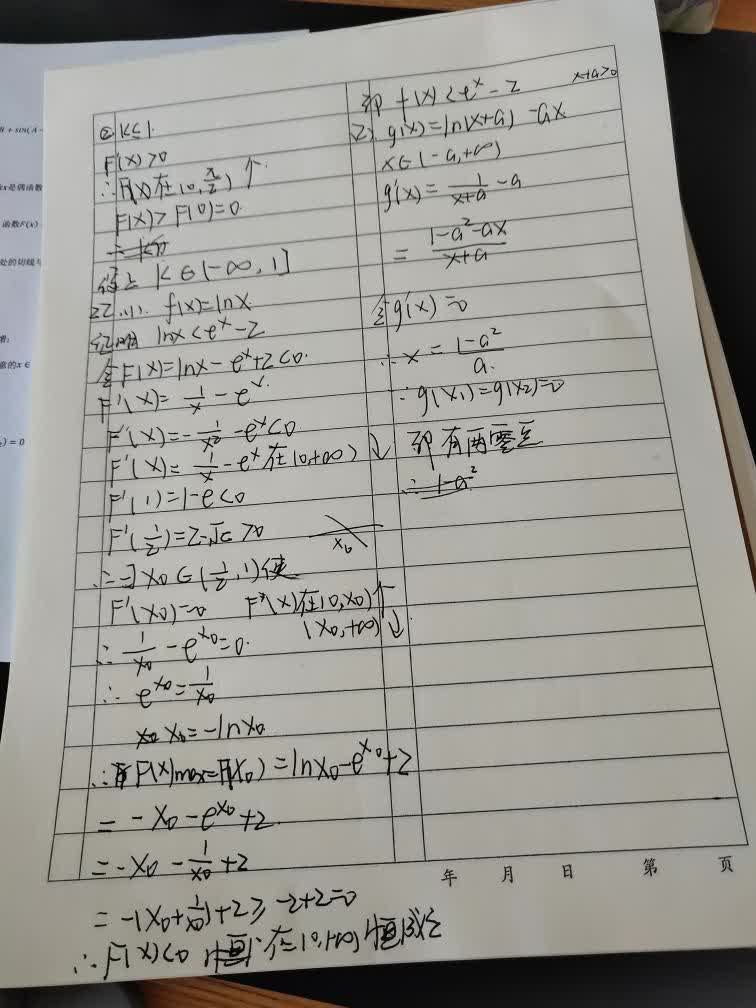 ② k≤1.
F'(x)>0
∴F(x)在(0,π/2)↑
F(x)>F(0)=0.
综上 k∈(-∞,1]
22.(1). f(x)=lnx.
证明 lnx<e^x-2
令F(x)=lnx-e^x+2<0.
F'(x)=1/x-e^x.
F''(x)=-1/x²-e^x<0
F'(x)=1/x-e^x在(0,+∞)↓
F'(1)=1-e<0
F'(1/2)=2-√e>0
x₀
∴∃x₀∈(1/2,1)使
F'(x₀)=0 F(x)在(0,x₀)↑
(x₀,+∞)↓
∴1/x₀-e^x₀=0.
∴e^x₀=1/x₀
x₀=-lnx₀
∴F(x)max=F(x₀)=lnx₀-e^x₀+2
=-x₀-e^x₀+2.
=-x₀-1/x₀+2
=-(x₀+1/x₀)+2≥-2+2=0
∴F(x)<0 在(0,+∞)恒成立
即 f(x)<e^x-2 x+a>0
2). g(x)=ln(x+a)-ax
x∈(-a,+∞)
g'(x)=1/(x+a)-a
=(1-a²-ax)/(x+a)
令g'(x)=0
∴x=(1-a²)/a.
∵g(x₁)=g(x₂)=0
即有两零点
∴1-a²
年 月 日 第 页
B+sin(A-
x是偶函数
函数F(x)
处的切线与
意的x∈
)=0